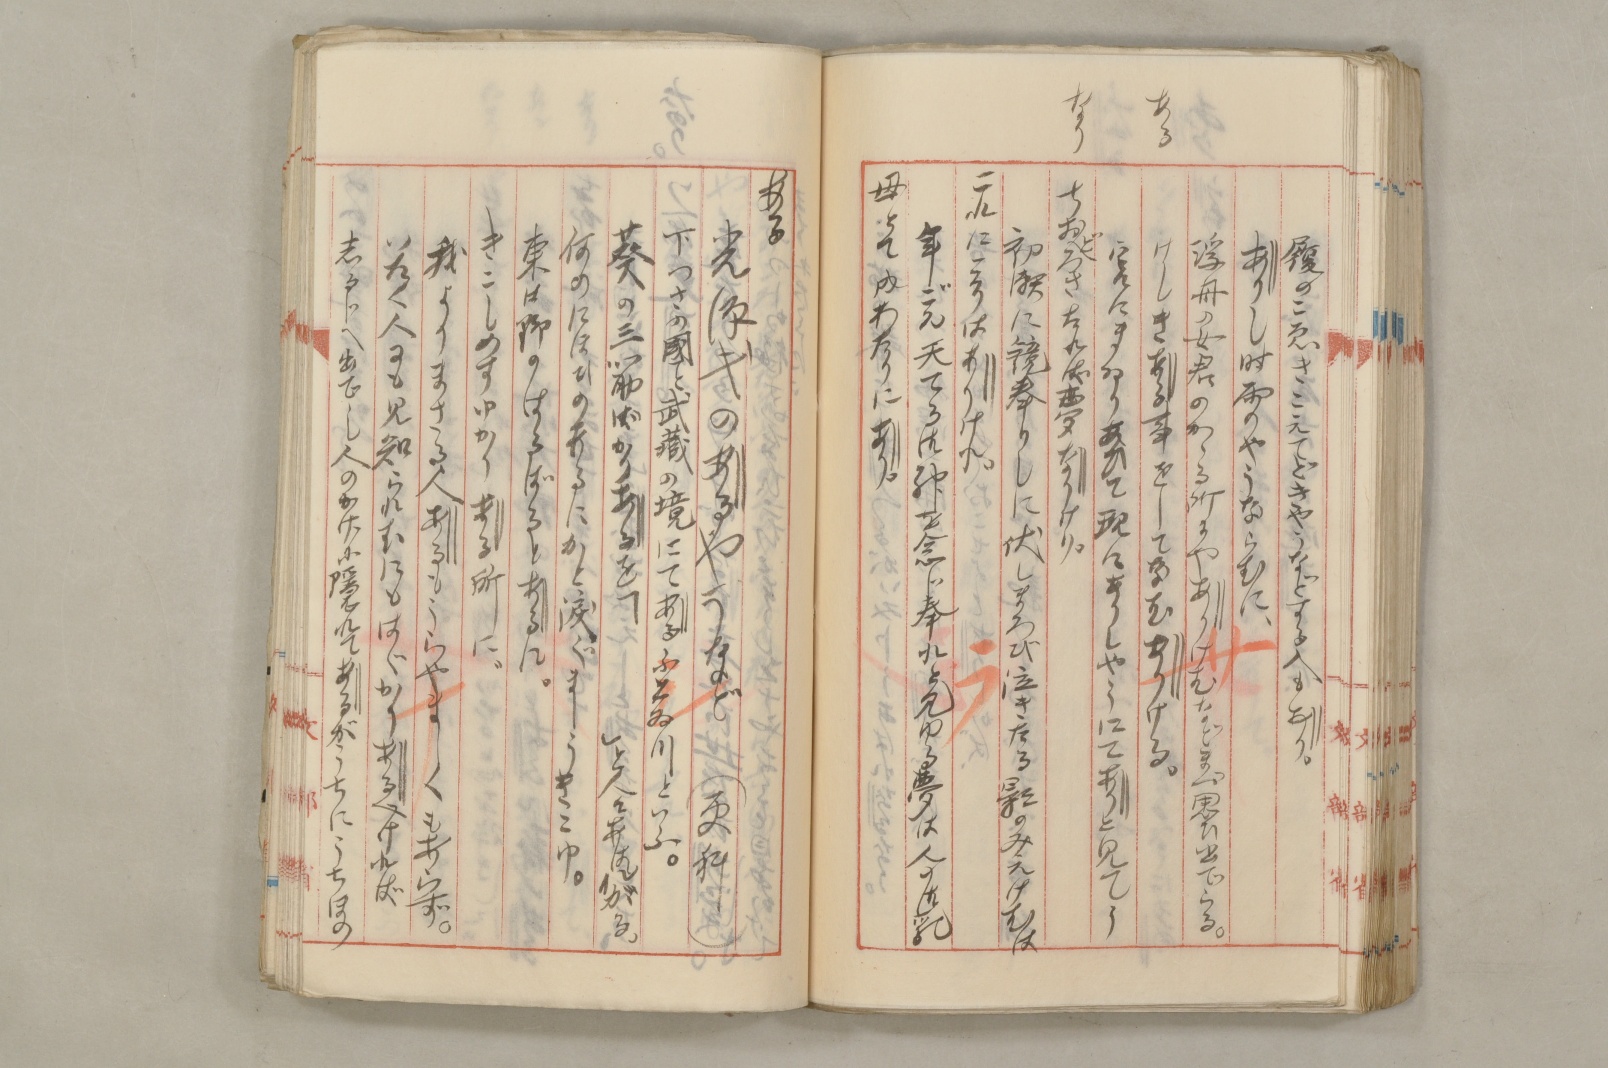 ある
なり
履のこゑきこえてどきやうなどする人もあり。
ありし時雨のやうならむに、
浮舟の女君のかゝる所にやありけむなどまづ思ひ出でらる。
けしきある事をしてなむありける。
宮にまゐりあひて現にありしやうにてありと見てう
ちおどろきたれば夢なりけり。
初瀬に鏡奉りしに伏しまろび泣きたる影のみえけむは
これにこそはありけれ。
年ごろ天てる御神を念じ奉れと見ゆる夢は人の御乳
母して内わたりにあり。
ある
光源氏のあるやうなど(更科)
下つさの國と武藏の境にてあるふとゐ川といふ。
葵の三筋ばかりあるを
」と人々あはれがる。
何のにほひのあるにかと涙ぐましうきこゆ。
東は野のはるばるとあるに。
きこしめすゆかりある所に、
我よりまさる人あるもうらやましくもあらず。
いふ人にも見知られむにもはゞかりあべければ
志たゝへ出でし人のかげに隱れてあるがうちにうちほの
サ
ラ
文部省